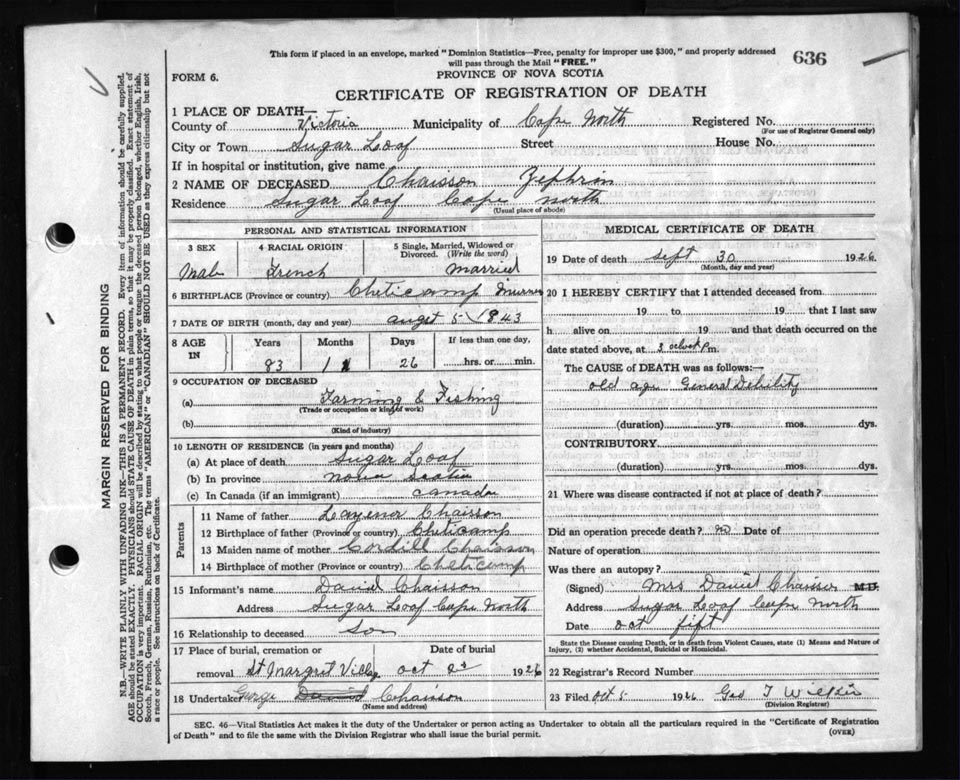 This form if placed in an envelope, marked "Dominion Statistics—Free, penalty for improper use $300," and properly addressed
will pass through the Mail "FREE."
636
PROVINCE OF NOVA SCOTIA
FORM 6.
CERTIFICATE OF REGISTRATION OF DEATH
1 PLACE OF DEATH—
County of Victoria Municipality of Cape North Registered No.
(For use of Registrar General only)
City or Town Sugar Loaf Street House No.
If in hospital or institution, give name
2 NAME OF DECEASED Chaisson Zephrin
Residence Sugar Loaf Cape North
(Usual place of abode)
PERSONAL AND STATISTICAL INFORMATION
3 SEX 4 RACIAL ORIGIN 5 Single, Married, Widowed or
Divorced. (Write the word)
Male French Married
6 BIRTHPLACE (Province or country) Cheticamp
7 DATE OF BIRTH (month, day and year) augst 5 1843
8 AGE IN Years Months Days If less than one day,
83 1 26 hrs. or min.
9 OCCUPATION OF DECEASED
(a) Farming & Fishing
(Trade or occupation or kind of work)
(b)
(Kind of industry)
10 LENGTH OF RESIDENCE (in years and months)
(a) At place of death Sugar Loaf
(b) In province nova scotia
(c) In Canada (if an immigrant) canada
Parents
11 Name of father Chaisson
12 Birthplace of father (Province or country) Cheticamp
13 Maiden name of mother Chaisson
14 Birthplace of mother (Province or country) Cheticamp
15 Informant's name Daniel Chaisson
Address Sugar Loaf Cape North
16 Relationship to deceased son
17 Place of burial, cremation or Date of burial
removal St Margret Village oct 2d 1926
18 Undertaker George Chaisson
(Name and address)
MEDICAL CERTIFICATE OF DEATH
19 Date of death sept 30 1926
(Month, day and year)
20 I HEREBY CERTIFY that I attended deceased from
19 to 19 that I last saw
h alive on 19 and that death occurred on the
date stated above, at 3 oclock Pm.
The CAUSE of DEATH was as follows:—
old age General Debility
(duration) yrs. mos. dys.
CONTRIBUTORY.
(duration) yrs. mos. dys.
21 Where was disease contracted if not at place of death?
Did an operation precede death? no Date of
Nature of operation
Was there an autopsy?
(Signed) Mrs Daniel Chaisson M.D.
Address Sugar Loaf Cape North
Date oct fift
State the Disease causing Death, or in death from Violent Causes, state (1) Means and Nature of
Injury, (2) whether Accidental, Suicidal or Homicidal.
22 Registrar's Record Number
23 Filed Oct 5 1926 Geo T
(Division Registrar)
SEC. 46—Vital Statistics Act makes it the duty of the Undertaker or person acting as Undertaker to obtain all the particulars required in the "Certificate of Registration
of Death" and to file the same with the Division Registrar who shall issue the burial permit. (OVER)
MARGIN RESERVED FOR BINDING
N.B.—WRITE PLAINLY WITH UNFADING INK—THIS IS A PERMANENT RECORD. Every item of information should be carefully supplied.
AGE should be stated EXACTLY. PHYSICIANS should STATE CAUSE OF DEATH in plain terms, so that it may be properly classified. Exact statement of
OCCUPATION is very important. RACIAL ORIGIN will be described by stating to what people or tongue the deceased person belonged, whether English, Irish,
Scotch, French, German, Russian, Ruthenian, etc. The terms "AMERICAN" or "CANADIAN" SHOULD NOT BE USED as they express citizenship but not
a race or people. See instructions on back of Certificate.